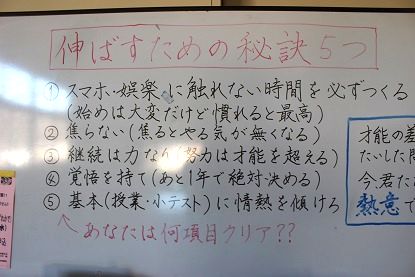 伸ばすための秘訣5つ
① スマホ・娯楽に触れない時間を必ずつくる
(始めは大変だけど慣れると最高)
② 焦らない(焦るとやる気が無くなる)
③ 継続は力なり(努力は才能を超える)
④ 覚悟を持て(あと1年で絶対決める)
⑤ 基本(授業・小テスト)に情熱を傾けろ
↖あなたは何項目クリア??
才能の差
たいした問
今、君たち
熱意で